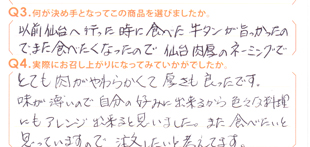 Q3.何が決め手となってこの商品を選びましたか。
以前仙台へ行った時に食べた牛タンが旨かったの
でまた食べたくなったので 仙台 肉厚のネーミングで
Q4.実際にお召し上がりになってみていかがでしたか。
とても肉がやわらかくて厚さも良ったです。
味が薄いので自分の好みに出来るから色々な料理
にもアレンジ出来ると思いました。また食べたいと
思っていますので 注文したいと考えてます。